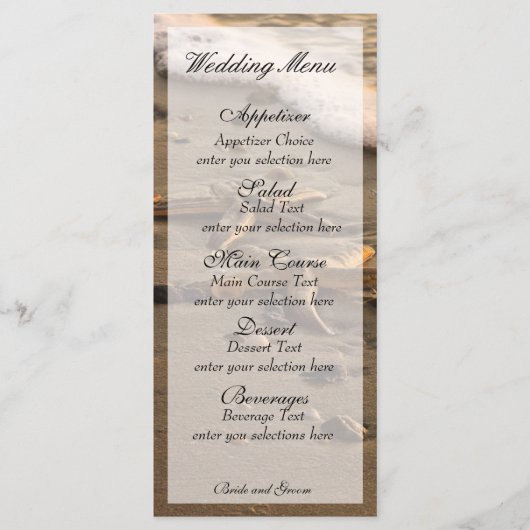 Wedding Menu
Appetizer
Appetizer Choice
enter you selection here
Salad
Salad Text
enter you selection here
Main Course
Main Course Text
enter you selection here
Dessert
Dessert Text
enter you selection here
Beverages
Beverage Text
enter you selections here
Bride and Groom